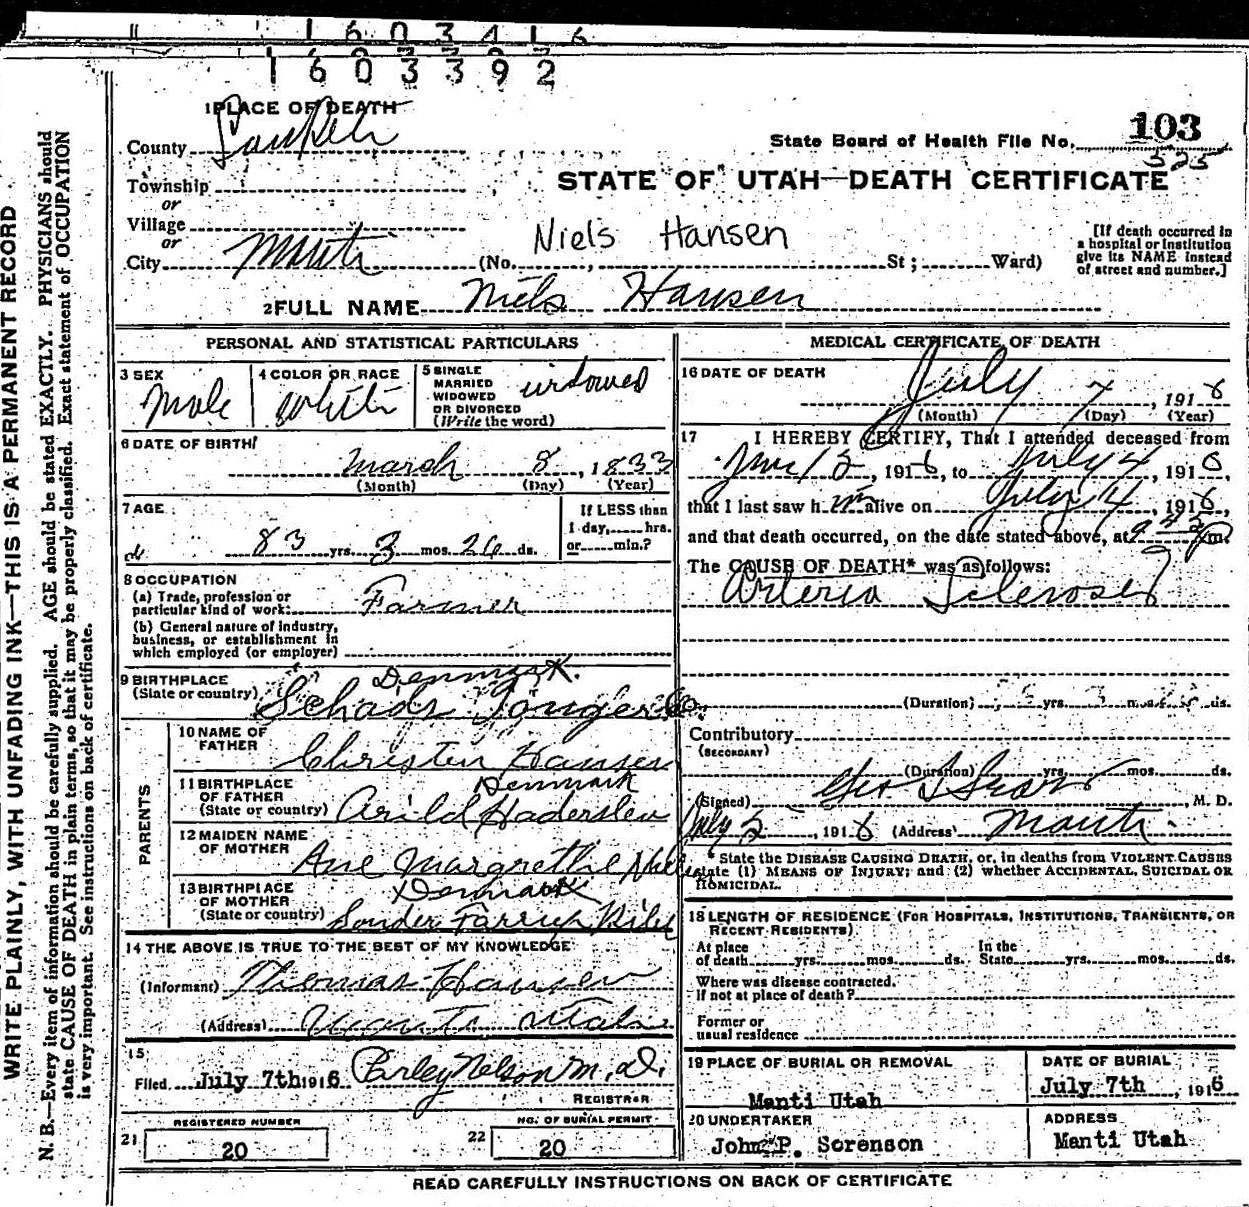 1 6 0 3 4 1 6
1 6 0 3 3 9 2
WRITE PLAINLY, WITH UNFADING INK—THIS IS A PERMANENT RECORD
N. B.—Every item of information should be carefully supplied. AGE should be stated EXACTLY. PHYSICIANS should
state CAUSE OF DEATH in plain terms, so that it may be properly classified. Exact statement of OCCUPATION
is very important. See instructions on back of certificate.
1 PLACE OF DEATH
County Sanpete
State Board of Health File No. 103
525
Township
or
STATE OF UTAH—DEATH CERTIFICATE
Village
or
Niels Hansen
City Manti (No. , St ; Ward)
[If death occurred in
a hospital or institution
give its NAME instead
of street and number.]
2 FULL NAME Niels Hansen
PERSONAL AND STATISTICAL PARTICULARS
3 SEX Male
4 COLOR OR RACE White
5 SINGLE
MARRIED
WIDOWED
OR DIVORCED
(Write the word)
widowed
6 DATE OF BIRTH
March 8, 1833
(Month) (Day) (Year)
7 AGE
83 yrs. 3 mos. 26 ds.
If LESS than
1 day, hrs.
or min.?
8 OCCUPATION
(a) Trade, profession or
particular kind of work: Farmer
(b) General nature of industry,
business, or establishment in
which employed (or employer)
9 BIRTHPLACE
(State or country)
Denmark.
10 NAME OF
FATHER
Christen Hansen
11 BIRTHPLACE
OF FATHER
(State or country)
Denmark
Arild Haderslev
12 MAIDEN NAME
OF MOTHER
Ane Margrethe
13 BIRTHPLACE
OF MOTHER
(State or country)
Denmark
Sonder Farrup
14 THE ABOVE IS TRUE TO THE BEST OF MY KNOWLEDGE
(Informant) Thomas Hansen
(Address) Manti Utah
15
Filed July 7th 1916 Parley Nelson M.D.
REGISTRAR
21 REGISTERED NUMBER
20
22 NO. OF BURIAL PERMIT
20
MEDICAL CERTIFICATE OF DEATH
16 DATE OF DEATH
July 4, 1916
(Month) (Day) (Year)
17 I HEREBY CERTIFY, That I attended deceased from
June 12, 1916, to July 4, 1916,
that I last saw him alive on July 4, 1916,
and that death occurred, on the date stated above, at m.
The CAUSE OF DEATH* was as follows:
Arterio Sclerosis
(Duration) yrs. mos. ds.
Contributory
(SECONDARY)
(Duration) yrs. mos. ds.
(Signed) Geo , M. D.
July 5, 1916 (Address) Manti
* State the DISEASE CAUSING DEATH, or, in deaths from VIOLENT CAUSES
state (1) MEANS OF INJURY; and (2) whether ACCIDENTAL, SUICIDAL OR
HOMICIDAL.
18 LENGTH OF RESIDENCE (FOR HOSPITALS, INSTITUTIONS, TRANSIENTS, OR
RECENT RESIDENTS)
At place
of death yrs. mos. ds.
In the
State yrs. mos. ds.
Where was disease contracted.
If not at place of death?
Former or
usual residence
19 PLACE OF BURIAL OR REMOVAL
Manti Utah
DATE OF BURIAL
July 7th, 1916
20 UNDERTAKER
John P. Sorenson
ADDRESS
Manti Utah
READ CAREFULLY INSTRUCTIONS ON BACK OF CERTIFICATE